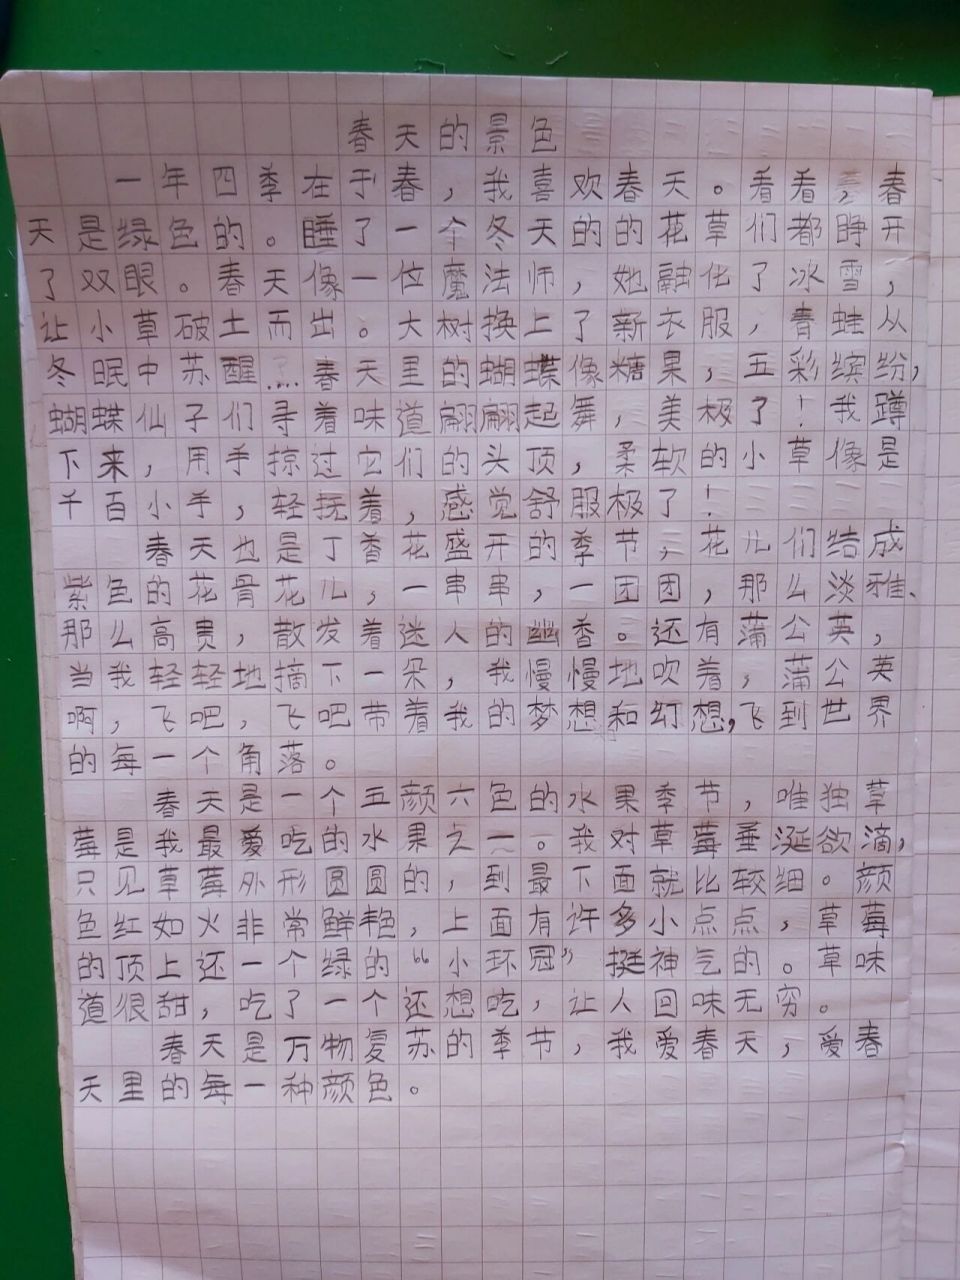 春天的景色
一年四季在于春，我喜欢春天。看看，春
天是绿色的。睡了一个冬天的的花草们都睁开
了双眼。春天像一位魔法师，她融化了冰雪，
让小草破土而出。大树换上了新衣服，青蛙从
冬眠中苏醒……春天里的蝴蝶像糖果，五彩缤纷，
蝴蝶仙子们寻着味道翩翩起舞，美极了！我蹲
下来，用手掠过它们的头顶，柔软的小草像是
千百小手，轻抚着，感觉舒服极了！
春天也是丁香花盛开的季节，花儿们结成
紫色的花骨花儿，一串串，一团团，那么淡雅、
那么高贵，散发着迷人的幽香。还有蒲公英，
当我轻轻地摘下一朵，我慢慢地吹着，蒲公英
啊，飞吧，飞吧带着我的梦想和幻想，飞到世界
的每一个角落。
春天是一个五颜六色的水果季节，唯独草
莓是我最爱吃的水果之一。我对草莓垂涎欲滴，
只见草莓外形圆圆的，到最下面就比较细。颜
色红如火非常鲜艳，上面有许多小点点，草莓
的顶上还一个绿的“小环冠”挺神气的。草味
道很甜，吃了一个还想吃，让人回味无穷。
春天是万物复苏的季节，我爱春天，爱春
天里的每一种颜色。